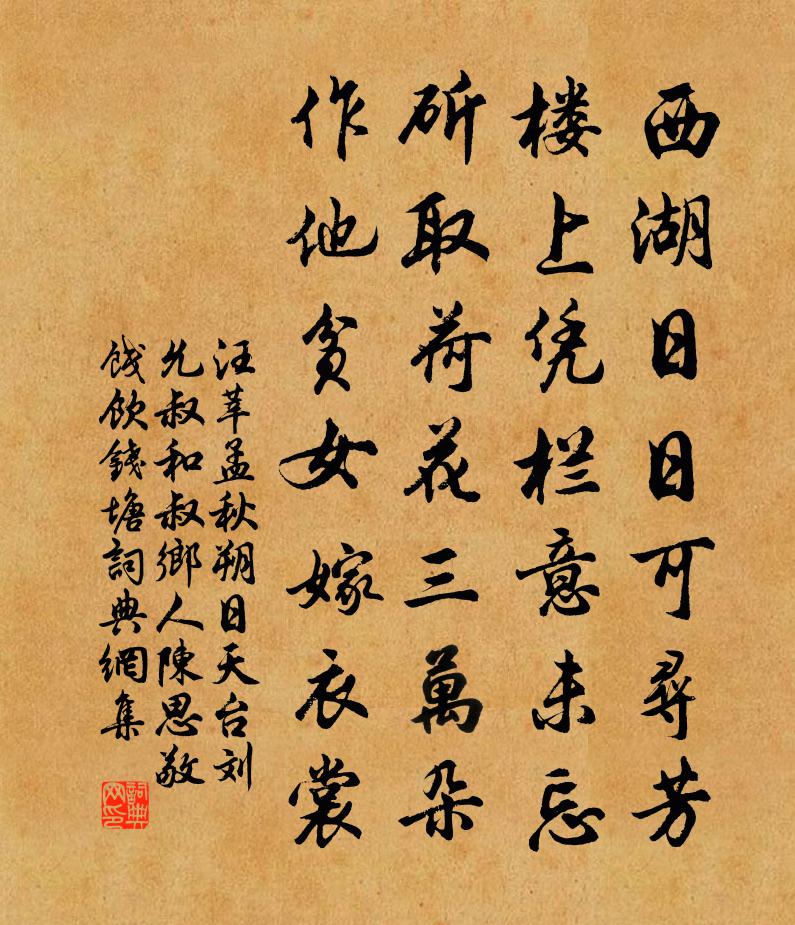 西湖日日可尋芳
楼上凭栏意未忘
斫取荷花三萬朵
作他贫女嫁衣裳
汪莘孟秋朔日天台刘
允叔和叔鄉人陳思敬
餞飲錢塘詞典網集
詞典
网印